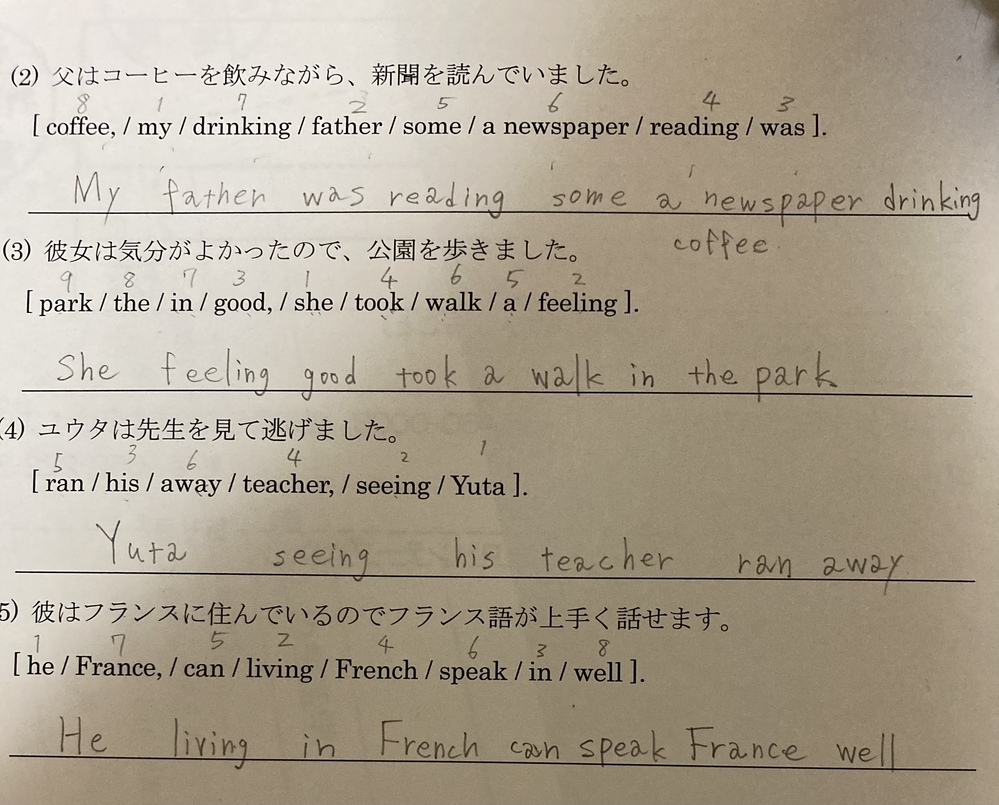 (2) 父はコーヒーを飲みながら、新聞を読んでいました。
8 1 7 2 5 6 4 3
[ coffee, / my / drinking / father / some / a newspaper / reading / was ].
My father was reading some a newspaper drinking
coffee.
(3) 彼女は気分がよかったので、公園を歩きました。
9 8 7 3 1 4 6 5 2
[ park / the / in / good, / she / took / walk / a / feeling ].
She feeling good took a walk in the park
(4) ユウタは先生を見て逃げました。
5 3 6 4 2 1
[ ran / his / away / teacher, / seeing / Yuta ].
Yuta seeing his teacher ran away
5) 彼はフランスに住んでいるのでフランス語が上手く話せます。
1 7 5 2 4 6 3 8
[ he / France, / can / living / French / speak / in / well ].
He living in French can speak France well